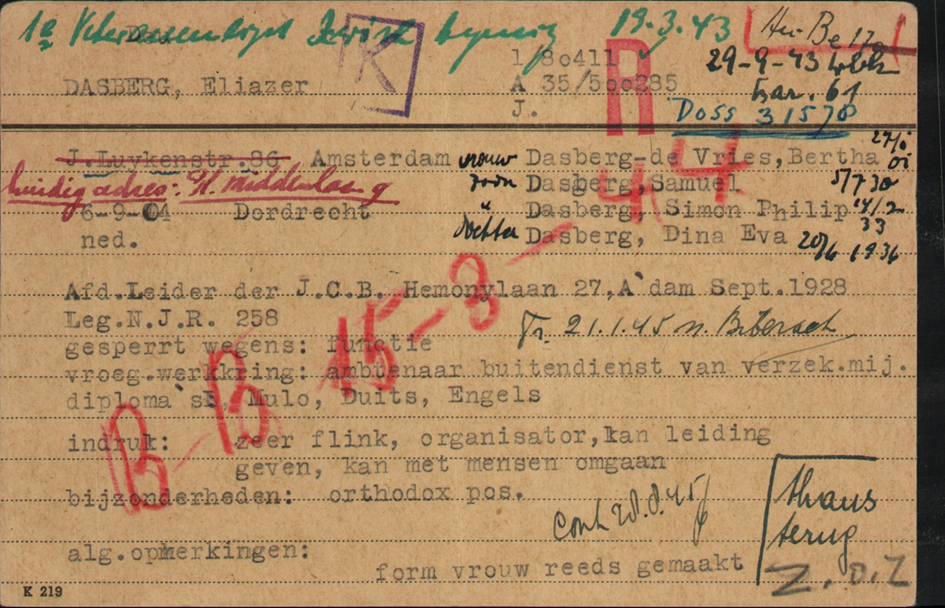 19.3.43
K
1/80411
29-9-43
DASBERG, Eliazer
A 35/500285
R
Bar. 61
J.
Doss 31578
J.Luykenstr.86 Amsterdam
vrouw Dasberg-de Vries, Bertha
huidig adres: Pl. middenlaan 9
zoon Dasberg, Samuel 5/7 30
6-9-04 Dordrecht
" Dasberg, Simon Philip 14/2 33
ned.
dochter Dasberg, Dina Eva 20/6 1936
Afd.Leider der J.C.B. Hemonylaan 27,A`dam Sept.1928
Leg.N.J.R. 258
Tr. 21.1.45 n. Biberach
gesperrt wegens: functie
vroeg.werkkring: ambtenaar buitendienst van verzek.mij.
diploma`s: Mulo, Duits, Engels
B-B 15-3-44
indruk: zeer flink, organisator, kan leiding
geven, kan met mensen omgaan
bijzonderheden: orthodox pos.
thans
terug
Z.O.Z
alg.opmerkingen:
form vrouw reeds gemaakt
K 219